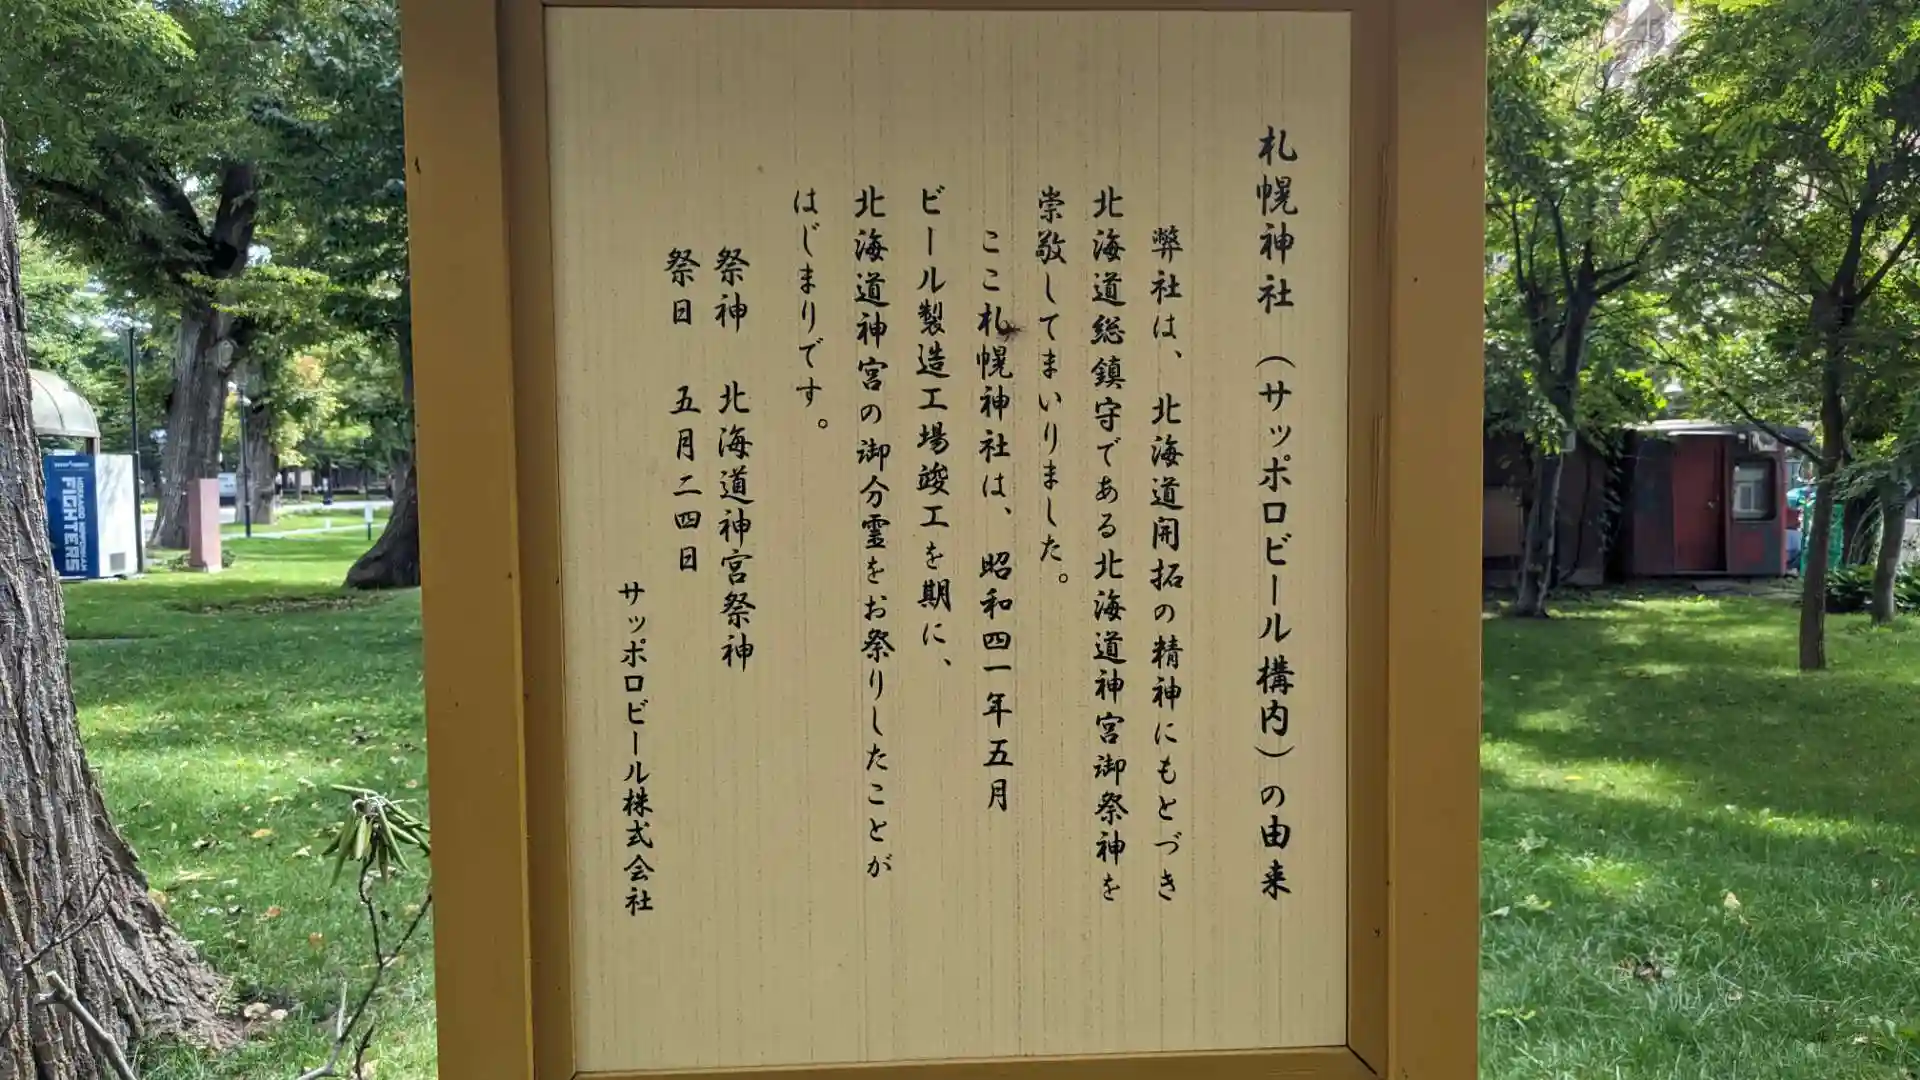 札幌神社（サッポロビール構内）の由来
弊社は、北海道開拓の精神にもとづき
北海道総鎮守である北海道神宮御祭神を
崇敬してまいりました。
ここ札幌神社は、昭和四一年五月
ビール製造工場竣工を期に、
北海道神宮の御分霊をお祭りしたことが
はじまりです。
祭神　北海道神宮祭神
祭日　五月二四日
サッポロビール株式会社
FIGHTERS